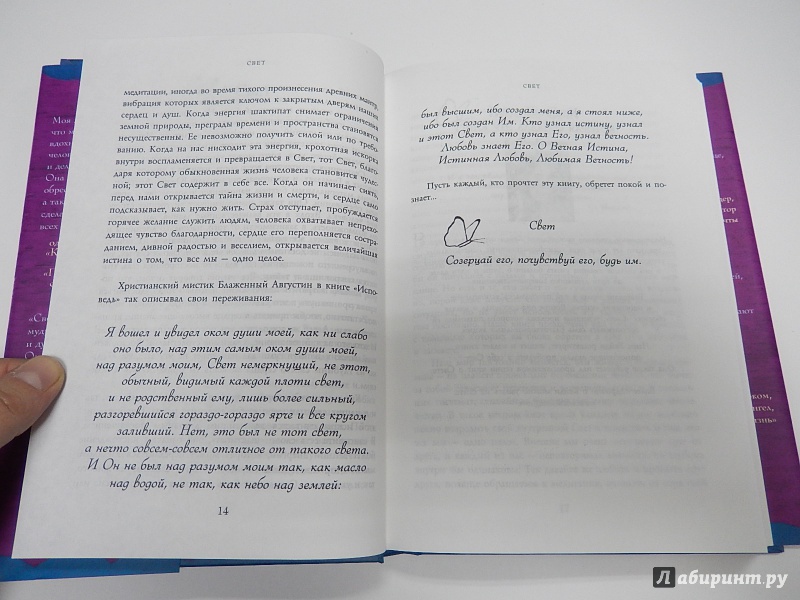 СВЕТ
медитации, иногда во время тихого произнесения древних мантр,
вибрация которых является ключом к закрытым дверям наших
сердец и душ. Когда энергия шактипат снимает ограничения
земной природы, преграды времени и пространства становятся
несущественны. Ее невозможно получить силой или по требо-
ванию. Когда на нас нисходит эта энергия, крохотная искорка
внутри воспламеняется и превращается в Свет, тот Свет, благо-
даря которому обыкновенная жизнь человека становится чудес-
ной; этот Свет содержит в себе все. Когда он начинает сиять,
перед нами открывается тайна жизни и смерти, и сердце само
подсказывает, как нужно жить. Страх отступает, пробуждается
горячее желание служить людям, человека охватывает непрехо-
дящее чувство благодарности, сердце его переполняется состра-
данием, дивной радостью и веселием, открывается величайшая
истина о том, что все мы — одно целое.
Христианский мистик Блаженный Августин в книге «Испо-
ведь» так описывал свои переживания:
Я вошел и увидел оком души моей, как ни слабо
оно было, над этим самым оком души моей,
над разумом моим, Свет немеркнущий, не этот,
обычный, видимый каждой плоти свет,
и не родственный ему, лишь более сильный,
разгоревшийся гораздо-гораздо ярче и все кругом
заливший. Нет, это был не тот свет,
а нечто совсем-совсем отличное от такого света.
И Он не был над разумом моим так, как масло
над водой, не так, как небо над землей:
14
СВЕТ
был высшим, ибо создал меня, а я стоял ниже,
ибо был создан Им. Кто узнал истину, узнал
и этот Свет, а кто узнал Его, узнал вечность.
Любовь знает Его. О Вечная Истина,
Истинная Любовь, Любимая Вечность!
Пусть каждый, кто прочтет эту книгу, обретет покой и по-
знает...
Свет
Созерцай его, почувствуй его, будь им.
Моя
что м
вдохн
челов
и дел
Она
обре
а так
сдел
всех
«К
«Си
муд
и ду
О
ше,
дер,
тор
нты
ей,
ают
ком,
нгел,
знь»
Лабиринт.ру